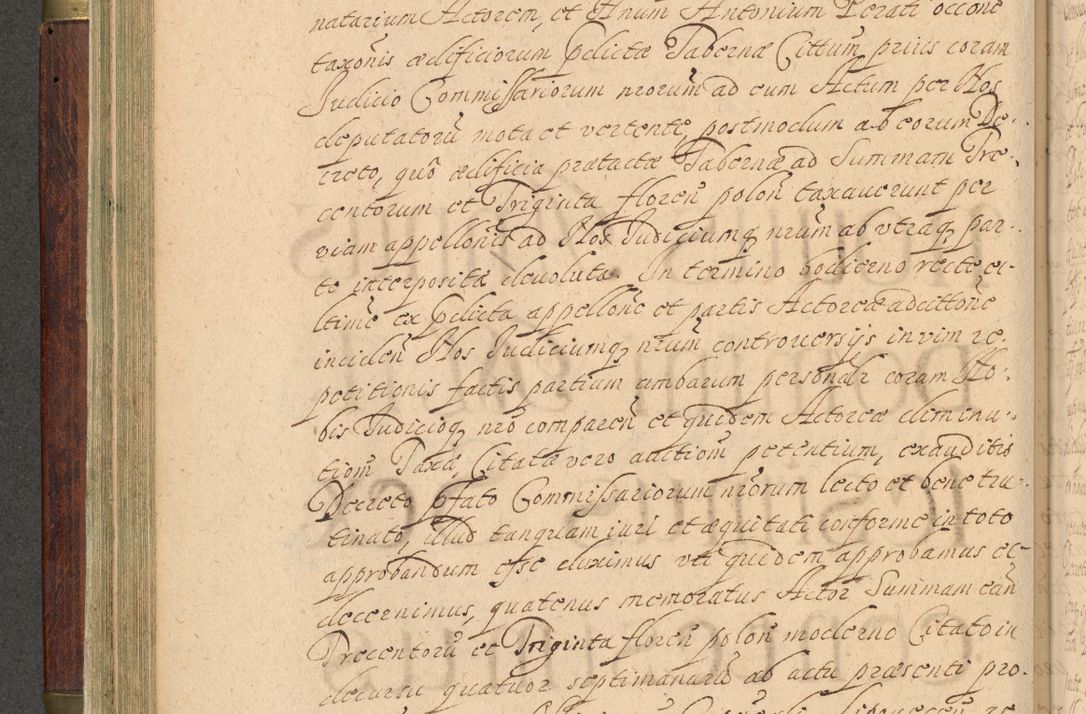 natarium Actorem, et Anum Antonium Perati occone
taxõnis ædificiorum pdictæ Tabernæ Cittum, prius coram
Judicio Commissariorum nrorum ad eum Actum per Nos
deputatorũ mota et vertente, postmodum ab eorum De-
creto, quõ ædificia prætactæ Tabernæ ad Summam Tre-
centorum et Triginta floren polon taxauerunt per
viam appellonis ad Nos Judiciumq nrum ab vtraq par-
te interposita deuoluta. In termino hodierno recte et
ltime ex pdicta appellone et partis Actoreæ adcittone
inciden Nos Judiciumq nrum controuersijs in vim re-
petitionis factis partium ambarum personalr coram No-
bis Judicioq nro comparen et quidem Actoreæ diminu-
tiom Taxæ, Citatæ vero auctiom petentium, exauditis
Decreto pfato Commissariorum nrorum lecto et bene tru-
tinato, illud tanquam iuri et æquitati conforme in toto
approbandum esse duximus vti quidem approbamus et
decernimus, quatenus memoratus Actor Summam eañ
Trecentorũ et Triginta floren polon moderno Citato in
decursu quatuor septimanarũ ab actu præsenti pro-